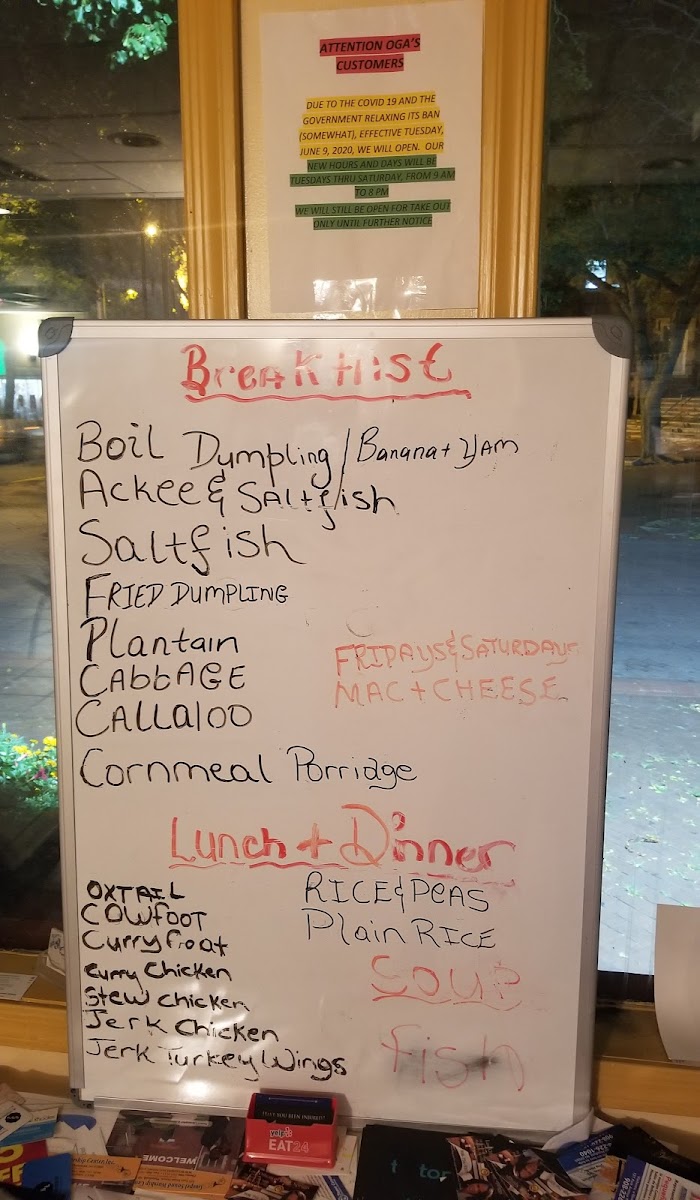 ATTENTION OGA'S
CUSTOMERS
DUE TO THE COVID 19 AND THE
GOVERNMENT RELAXING ITS BAN
(SOMEWHAT), EFFECTIVE TUESDAY,
JUNE 9, 2020, WE WILL OPEN. OUR
NEW HOURS AND DAYS WILL BE
TUESDAYS THRU SATURDAY, FROM 9 AM
TO 8 PM
WE WILL STILL BE OPEN FOR TAKE OUT
ONLY UNTIL FURTHER NOTICE
Breakfast
Boil Dumpling / Banana + YAM
Ackee & SALtfish
Saltfish
FRIED DUMPLING
Plantain
CAbbAGE
CALLAlOO
Cornmeal Porridge
FRIDAYS & SATURDAYS
MAC + CHEESE
Lunch + Dinner
OXTAIL
COWfOOT
Curry Goat
Curry Chicken
Stew Chicken
Jerk Chicken
Jerk Turkey Wings
RICE & PeAS
Plain RICE
Soup
fish
HAVE YOU BEEN INJURED?
yelp
EAT24
WELCOME